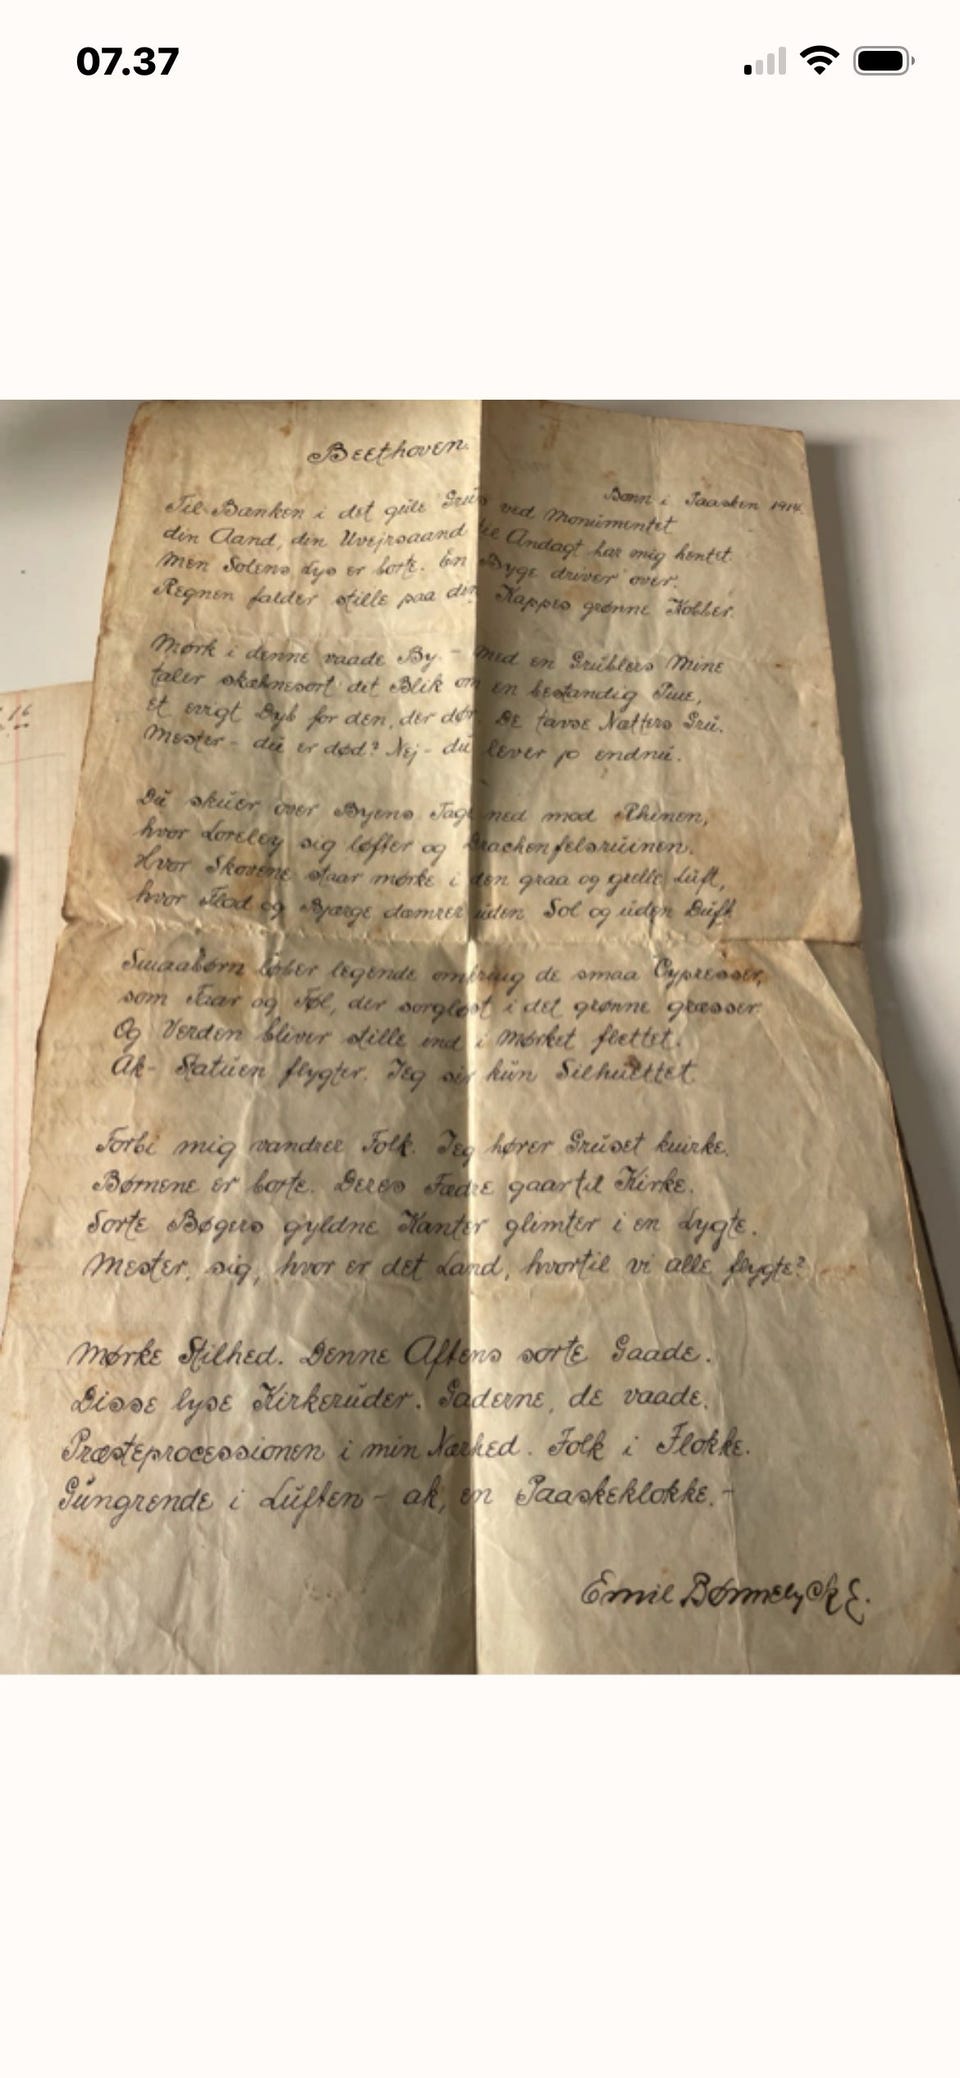 07.37
Beethoven.
Bonn i Paasken 1914.
Til Bænken i det gule Grus ved Monumentet
din Aand, din Uvejrsaand til Andagt har mig hentet.
Men Solens Lys er borte. En Byge driver over.
Regnen falder stille paa din Kappes grønne Kobber.
Mørk i denne vaade By. - Med en Grublers Mine
taler skæbnesort dit Blik om en bestandig Pine,
et evigt Dyb for den, der dør. De tavse Nætters Gru.
Mester - du er død? Nej - du lever jo endnu.
Du skuer over Byens Tage ned mod Rhinen,
hvor Loreley sig løfter og Drachenfelsruinen.
Hvor Skovene staar mørke i den graa og grelle Luft,
hvor Flod og Bjærge dæmrer uden Sol og uden Duft.
Smaabørn løber legende omkring de smaa Cypresser,
som Faar og Føl, der sorgløst i det grønne græsser.
Og Verden bliver stille ind i Mørket flettet.
Ak - Statuen flygter. Jeg ser kun Silhuettet.
Forbi mig vandrer Folk. Jeg hører Gruset knirke.
Børnene er borte. Deres Fædre gaar til Kirke.
Sorte Bøgers gyldne Kanter glimter i en Lygte.
Mester, sig, hvor er det Land, hvortil vi alle flygte?
Mørke Stilhed. Denne Aftens sorte Gaade.
Disse lyse Kirkeruder. Gaderne, de vaade.
Præsteprocessionen i min Nærhed. Folk i Flokke.
Gungrende i Luften - ak, en Paaskeklokke. -
Emil Bønnelycke.